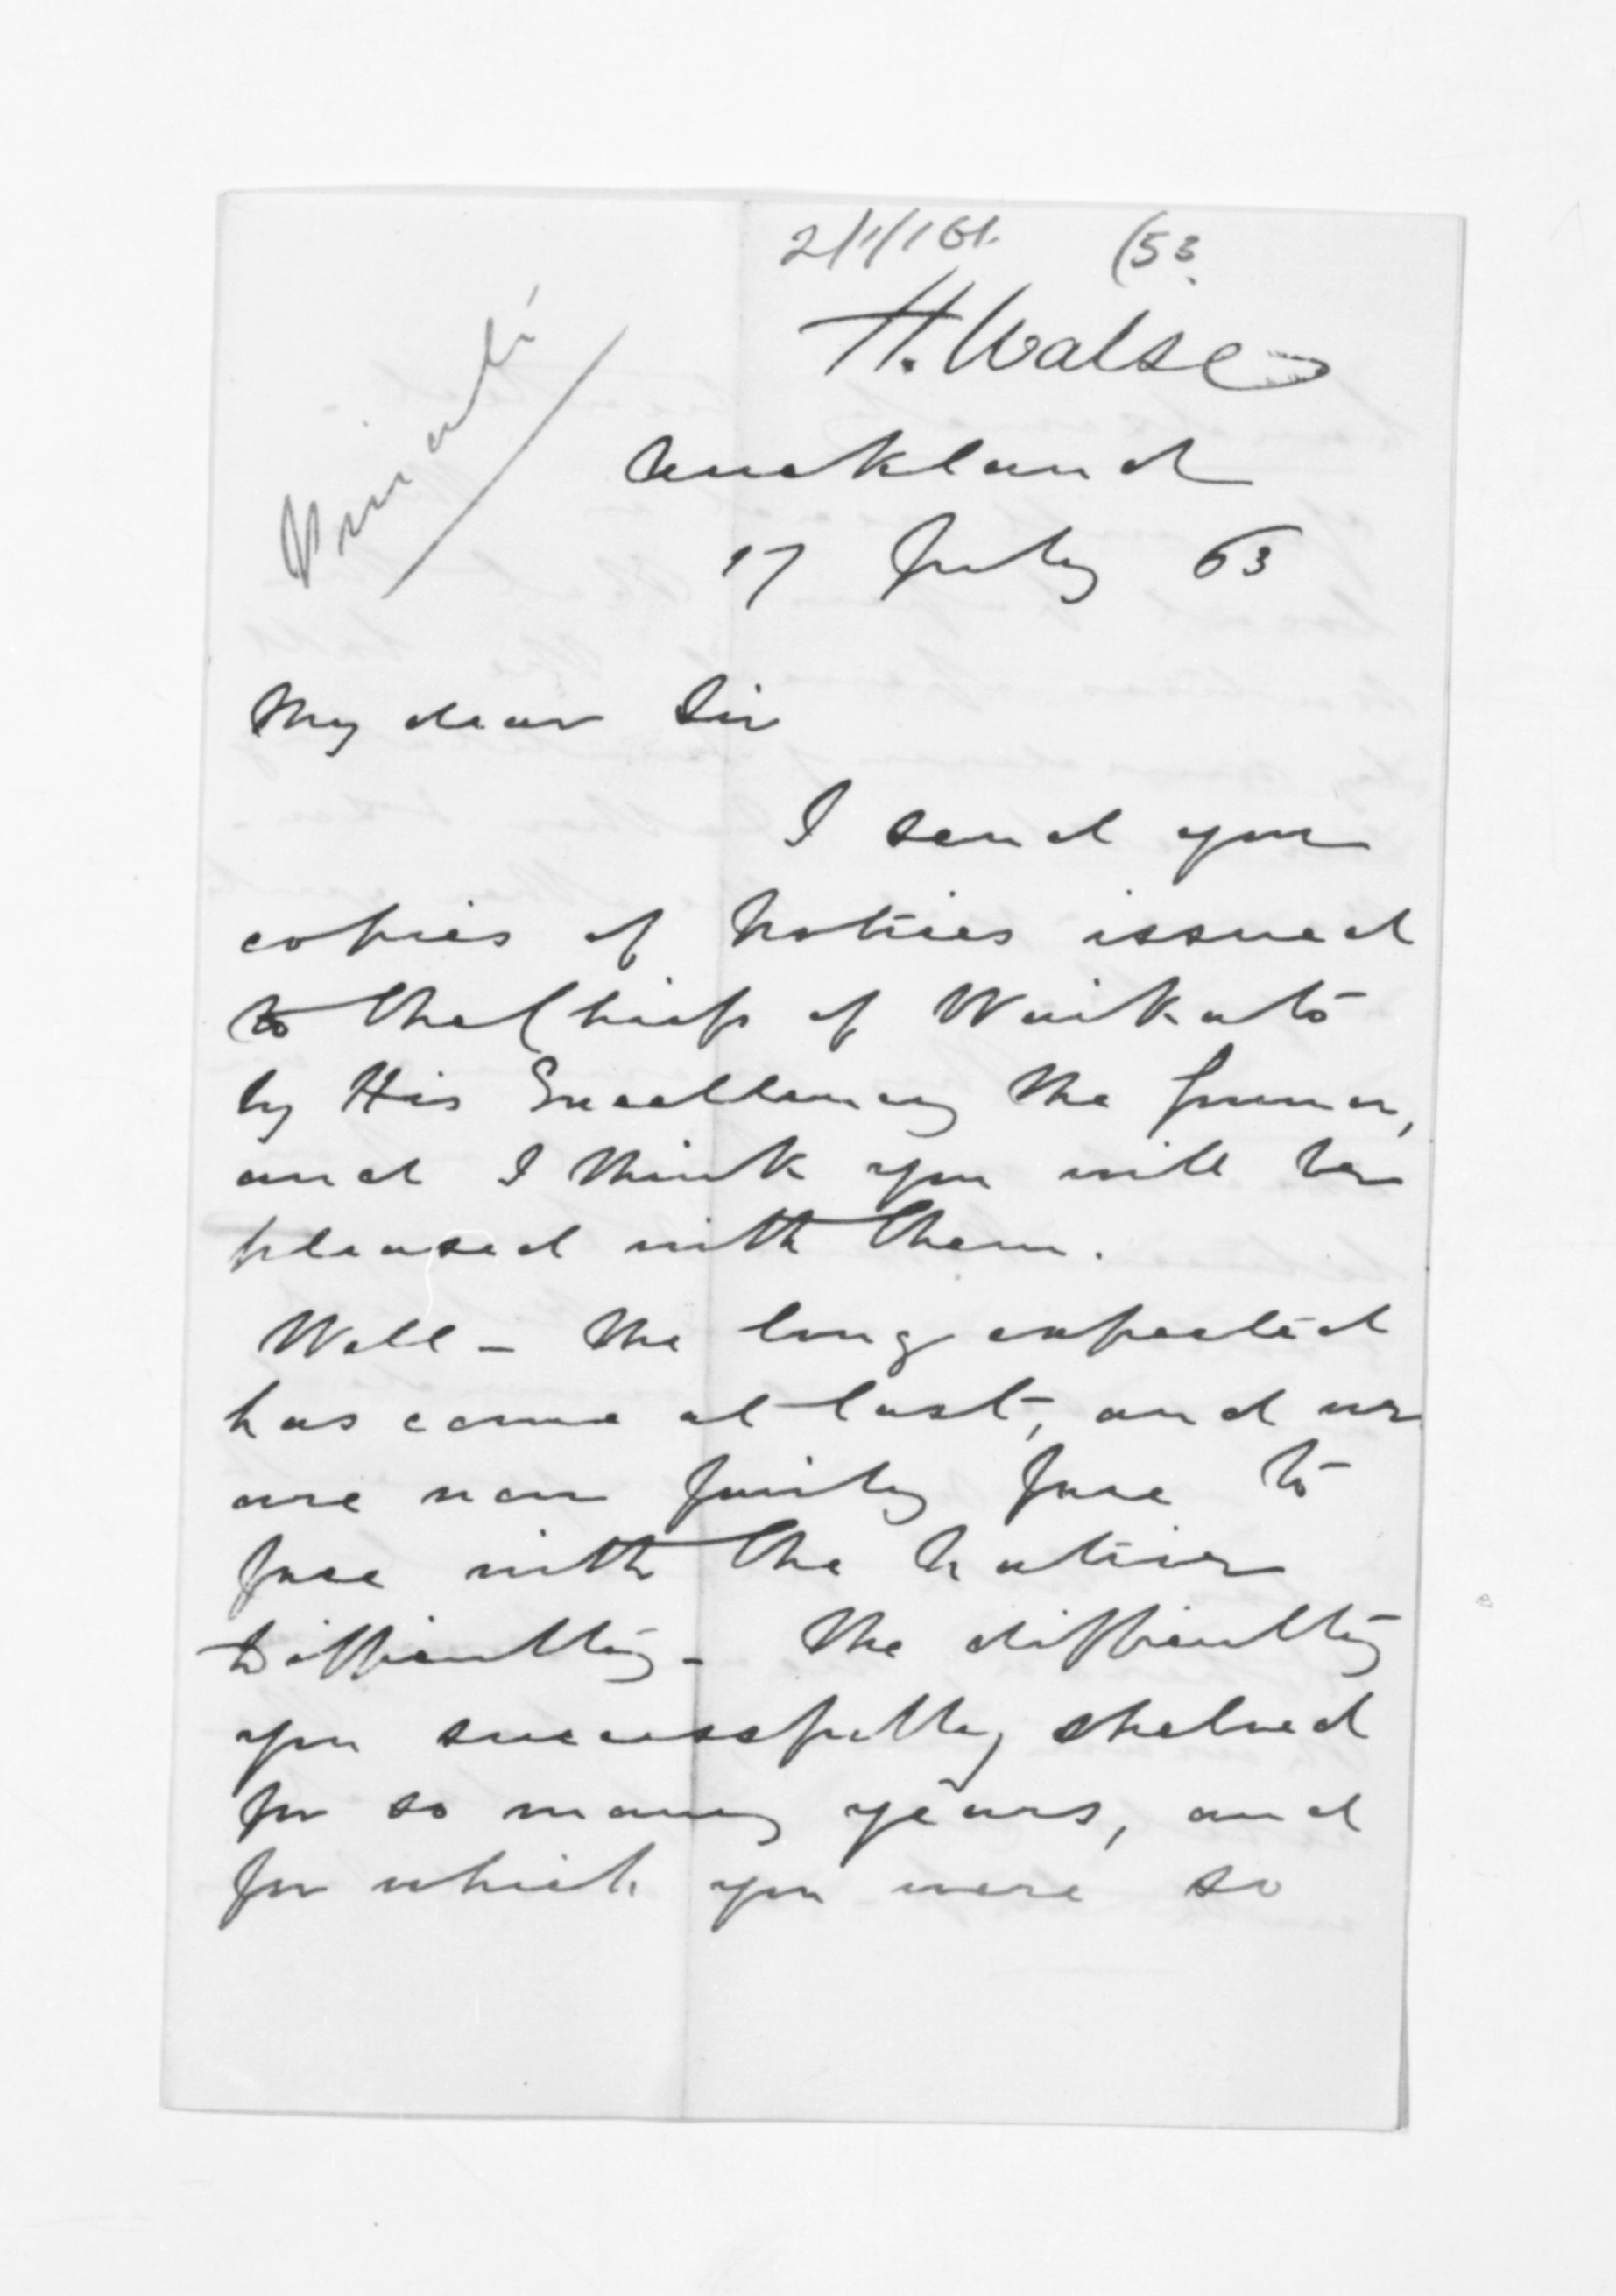 2/1/161. (53.
H. Halse
Private
Auckland
17 July 63
My dear Sir
I send you
copies of Notices issued
to the Chiefs of Waikato
by His Excellency the Governor,
and I think you will be
pleased with them.
Well - the long expected
has come at last, and we
are now fairly face to
face with the Native
Difficulty - The difficulty
you successfully shelved
for so many years, and
for which you were so